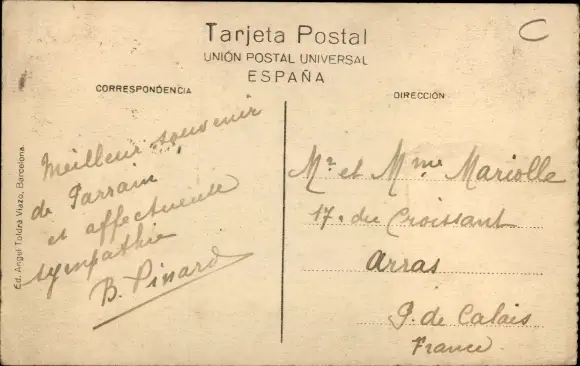 Tarjeta Postal
UNIÓN POSTAL UNIVERSAL
ESPAÑA
CORRESPONDENCIA
DIRECCIÓN
Ed. Angel Toldrá Viazo, Barcelona
Meilleur souvenir
de Parrain
et affectueuse
sympathie
B. Pinard
Mr et Mme Mariolle
17. du Croissant
Arras
P. de Calais
France
C